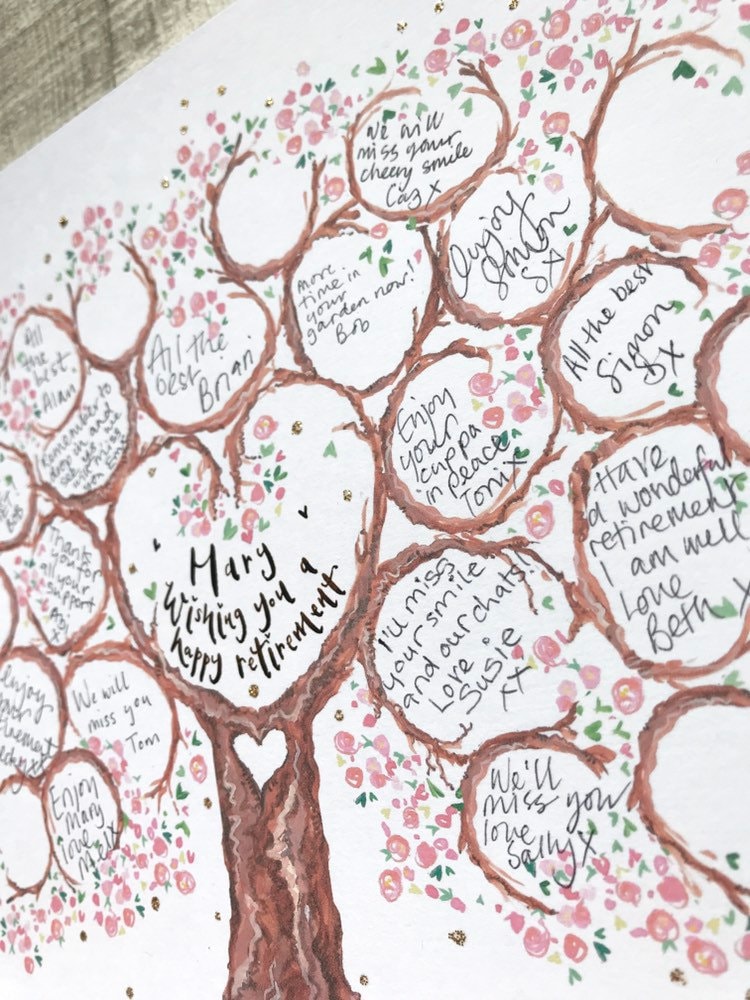 We will
miss your
cheery smile
Caz X
Enjoy
Simon
SX
more
time in
your
garden now!
Bob
All the best
Simon
SX
All
the
best,
Alan
All the
best
Brian
Enjoy
your
cuppa
in peace
Toni X
Remember to
pop in and
see us
Have
a wonderful
retirement
I am well
Love
Beth X
Mary
Wishing you a
happy retirement
Thanks
you for
all your
support
I'll miss
your smile
and our chats!!
Love
Susie
xx
enjoy
your
retirement
We will
miss you
Tom
We'll
miss you
love
Sally X
Enjoy
Mary
love
Mel X